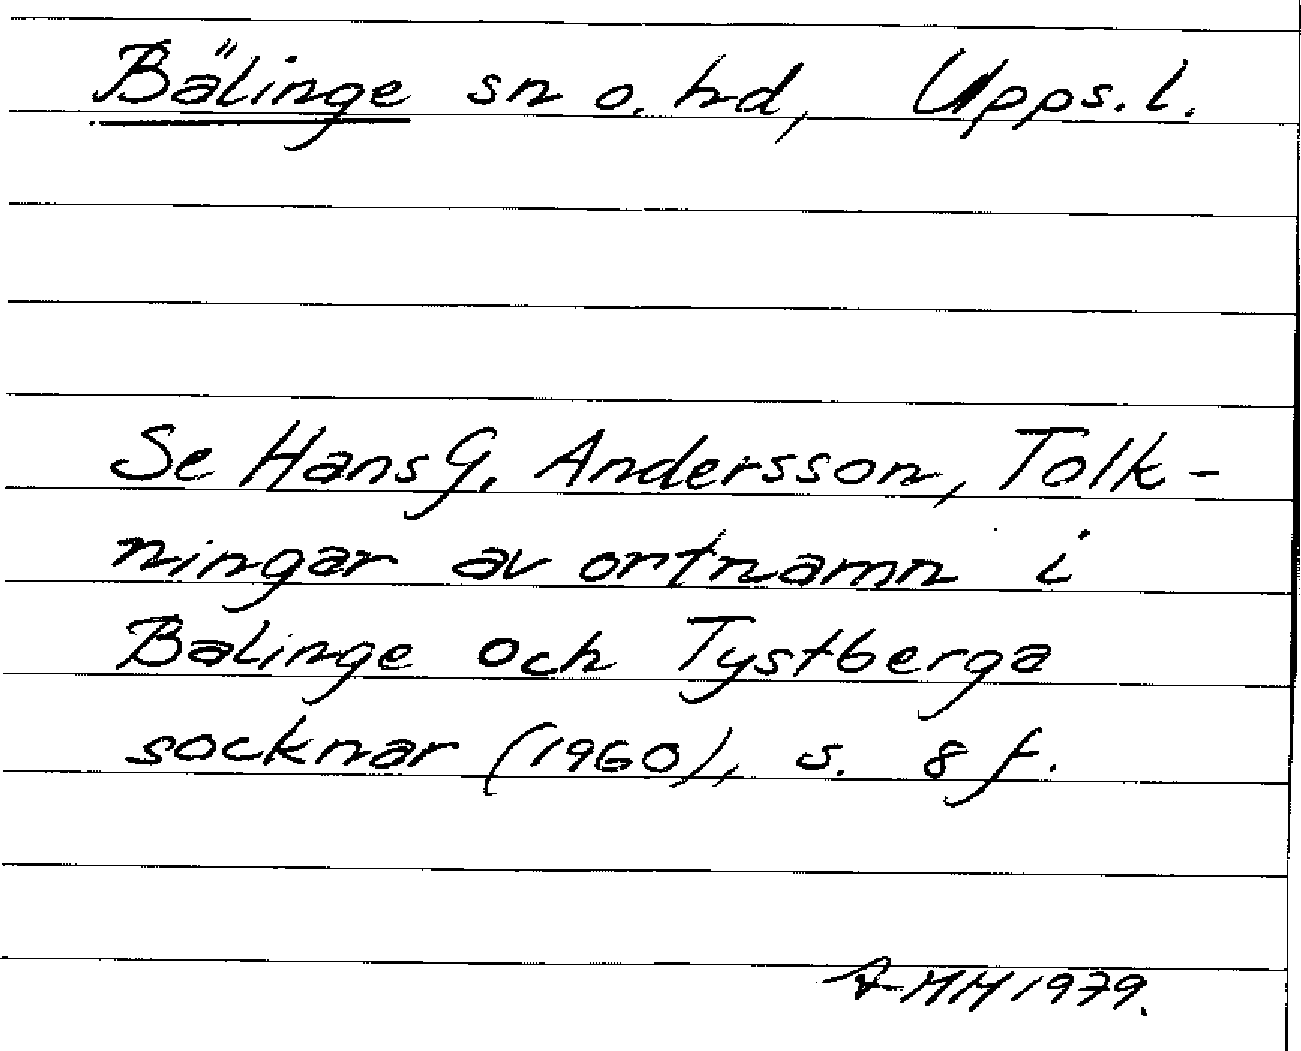 Bälinge sn o. hd, Upps. l.
Se Hans G. Andersson, Tolk-
ningar av ortnamn i
Balinge och Tystberga
socknar (1960), s. 8 f.
AMM 1979.